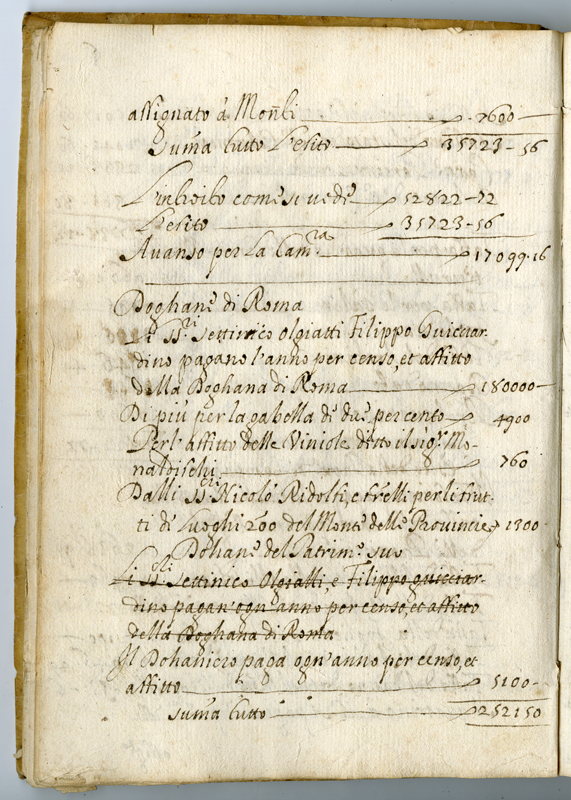 assignato à Monti — 7600 —
Suma tutto l'esito — 35723-56
L'introito come si vede — 52822-72
L'esito — 35723-56
Auanso per la Cam.ra — 17099.16
Doghane di Roma
Li SS.ri Settimio Olgiatti Filippo Guicciar-
dino pagano l'anno per censo, et affitto
della Doghana di Roma — 180000 —
Di più per la gabella di due per cento — 4900
Per l'affitto delle Viniole ditto il sig.r Mo-
naldischi — 760
Dalli SS.ri Nicolò Ridolfi, e frelli per li frut-
ti di luoghi 200 del Monte delle Prouincie 1300
Dohane del Patrim.o suo
Li SS.ri Settimio Olgiatti, e Filippo guicciar-
dino pagan' ogn'anno per censo, et affitto
della Doghana di Roma
Il Dohaniero paga ogn'anno per censo, et
affitto — 5100 —
suma tutto — 252150